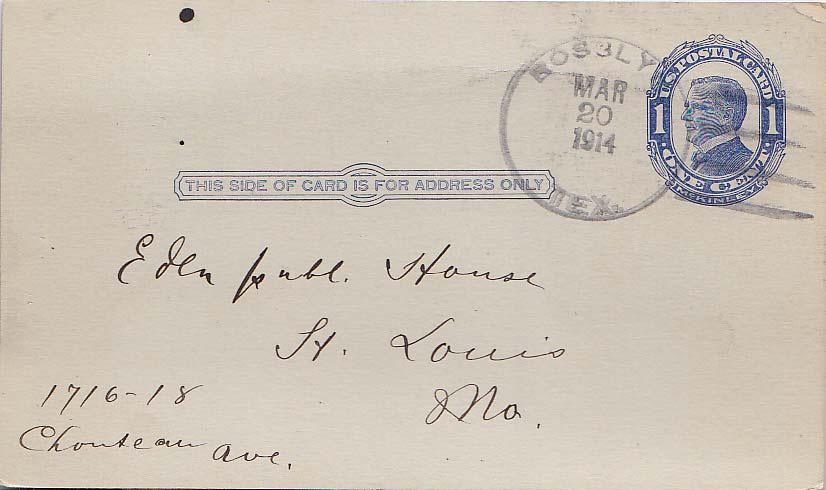 BOSBLY
MAR
20
1914
TEX.
U.S. POSTAL CARD
1 1
ONE CENT
McKINLEY
THIS SIDE OF CARD IS FOR ADDRESS ONLY
Eden publ. House
St. Louis
Mo.
1716-18
Chouteau ave.